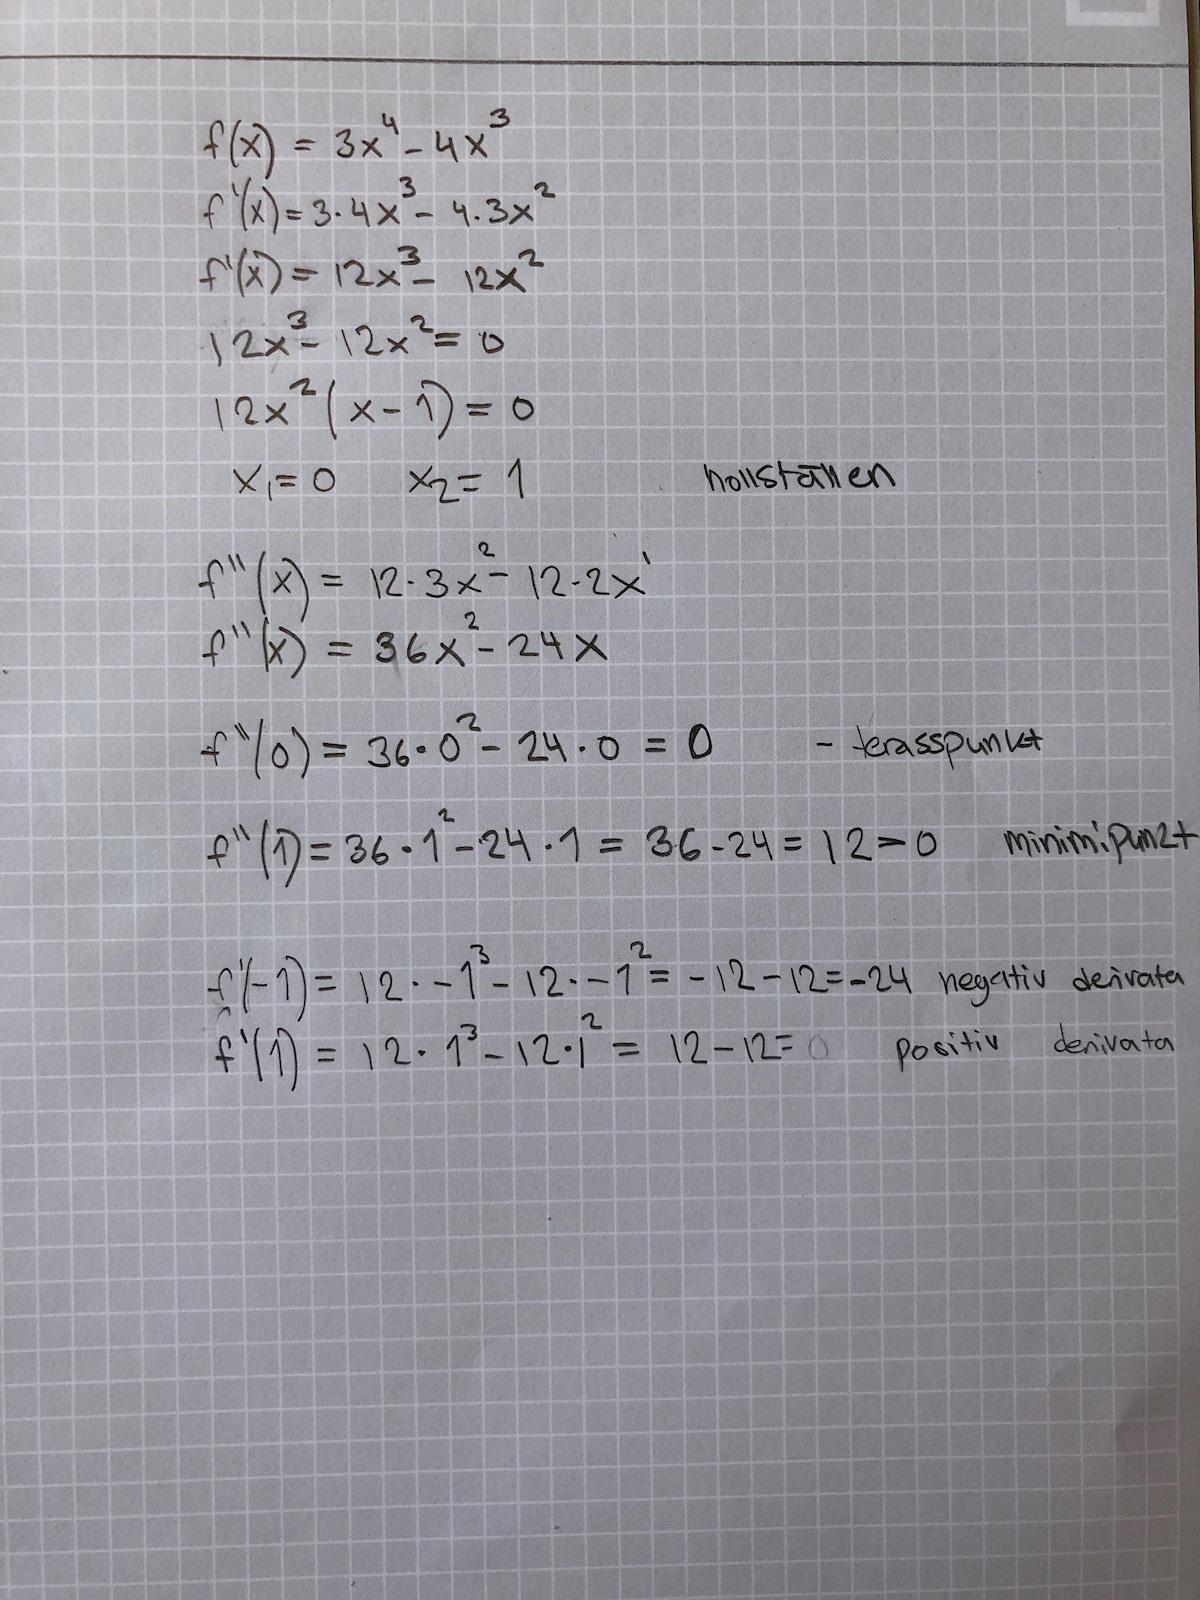 f(x) = 3x⁴ - 4x³
f'(x) = 3·4x³ - 4·3x²
f'(x) = 12x³ - 12x²
12x³ - 12x² = 0
12x²(x-1) = 0
x₁ = 0 x₂ = 1 nollställen
f''(x) = 12·3x² - 12·2x¹
f''(x) = 36x² - 24x
f''(0) = 36·0² - 24·0 = 0 - terasspunkt
f''(1) = 36·1² - 24·1 = 36-24 = 12 > 0 minimipunkt
f'(-1) = 12·-1³ - 12·-1² = -12-12 = -24 negativ derivata
f'(1) = 12·1³ - 12·1² = 12-12 = 0 positiv derivata